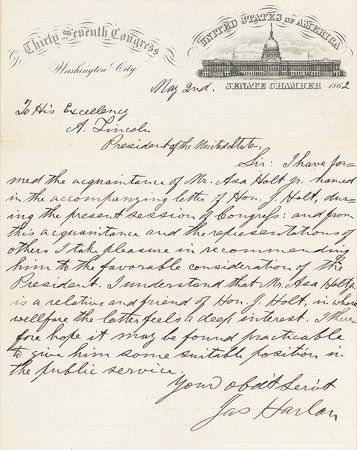 Thirty Seventh Congress
Washington City
UNITED STATES OF AMERICA
SENATE CHAMBER 1862
May 2nd.
To His Excellency
A. Lincoln
President of the United States,
Sir: I have for-
med the acquaintance of Mr. Asa Holt Jr. named
in the accompanying letter of Hon. J. Holt, dur-
ing the present session of Congress: and from
this acquaintance and the representations of
others I take pleasure in recommending
him to the favorable consideration of the
President. I understand that Mr. Asa Holt Jr
is a relative and friend of Hon. J. Holt, in whose
wellfare the latter feels a deep interest. I there
fore hope it may be found practicable
to give him some suitable position in
the public service.
Your obdt Servt
Jas Harlan